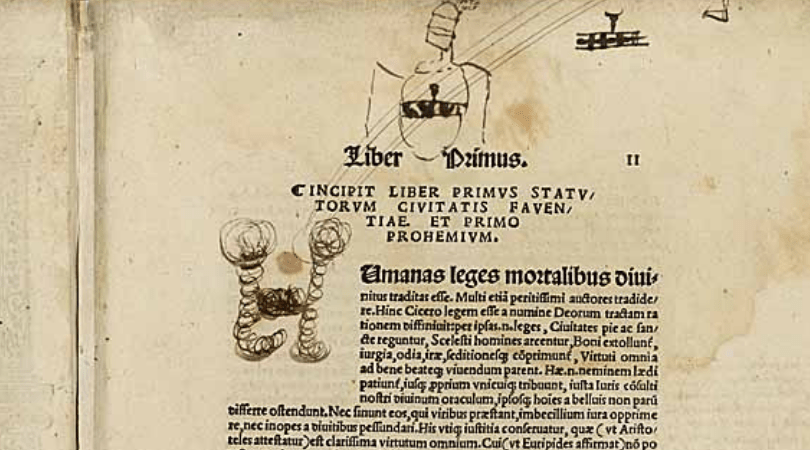 Liber Primus. II
¶ INCIPIT LIBER PRIMVS STATV/
TORVM CIVITATIS FAVEN/
TIAE. ET PRIMO
PROHEMIVM.
H
Umanas leges mortalibus diui-
nitus traditas esse. Multi etiã peritissimi auctores tradide/
re. Hinc Cicero legem esse a numine Deorum tractam ra
tionem diffiniuit: per ipsas.n.leges, Ciuitates pie ac san/
cte reguntur, Scelesti homines arcentur, Boni extollunť,
iurgia, odia, iræ, seditionesq; cõprimunť, Virtuti omnia
ad bene beateq; viuendum parent. Hæ.n.neminem lædi
patiunť, iusq; pprium vnicuiq; tribuunt, iusta Iuris cõsulti
nostri diuinum oraculum, ipsosq; hoies a belluis non parũ
differre ostendunt. Nec sinunt eos, qui viribus præstant, imbecillium iura opprime
re, nec inopes a diuitibus pessundari. His vtiq; iustitia conseruatur, quæ (vt Aristo/
teles attestatur) est clarissima virtutum omnium. Cui (vt Euripides affirmat) nõ po